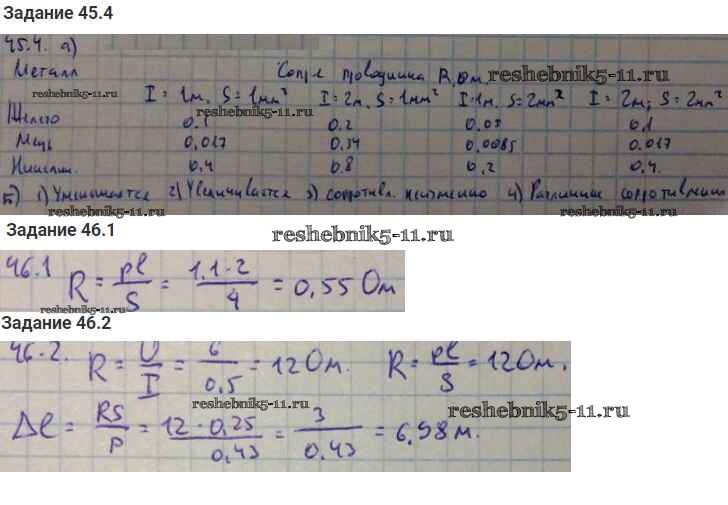 Задание 45.4
45.4. а)
Металл Сопр. проводника R, Ом reshebnik5-11.ru
reshebnik5-11.ru l = 1м. S = 1мм² l = 2м. S = 1мм² l = 1м. S = 2мм² l = 2м; S = 2мм²
Железо 0.1 0.2 0.05 0.1
reshebnik5-11.ru
Медь 0,017 0,34 0.0085 0.017
0,4 0.8 0,2 0,4.
б) 1) Уменьшается 2) Увеличивается 3) сопротивл. неизменно 4) Различные сопротивления
reshebnik5-11.ru reshebnik5-11.ru
Задание 46.1
reshebnik5-11.ru
46.1 R = ρl/S = 1,1·2/4 = 0,55 Ом
reshebnik5-11.ru
Задание 46.2
46.2. R = U/I = 6/0,5 = 12 Ом. R = ρl/S = 12 Ом.
reshebnik5-11.ru reshebnik5-11.ru
Δl = RS/ρ = 12·0,25/0,43 = 3/0,43 = 6,98 м.